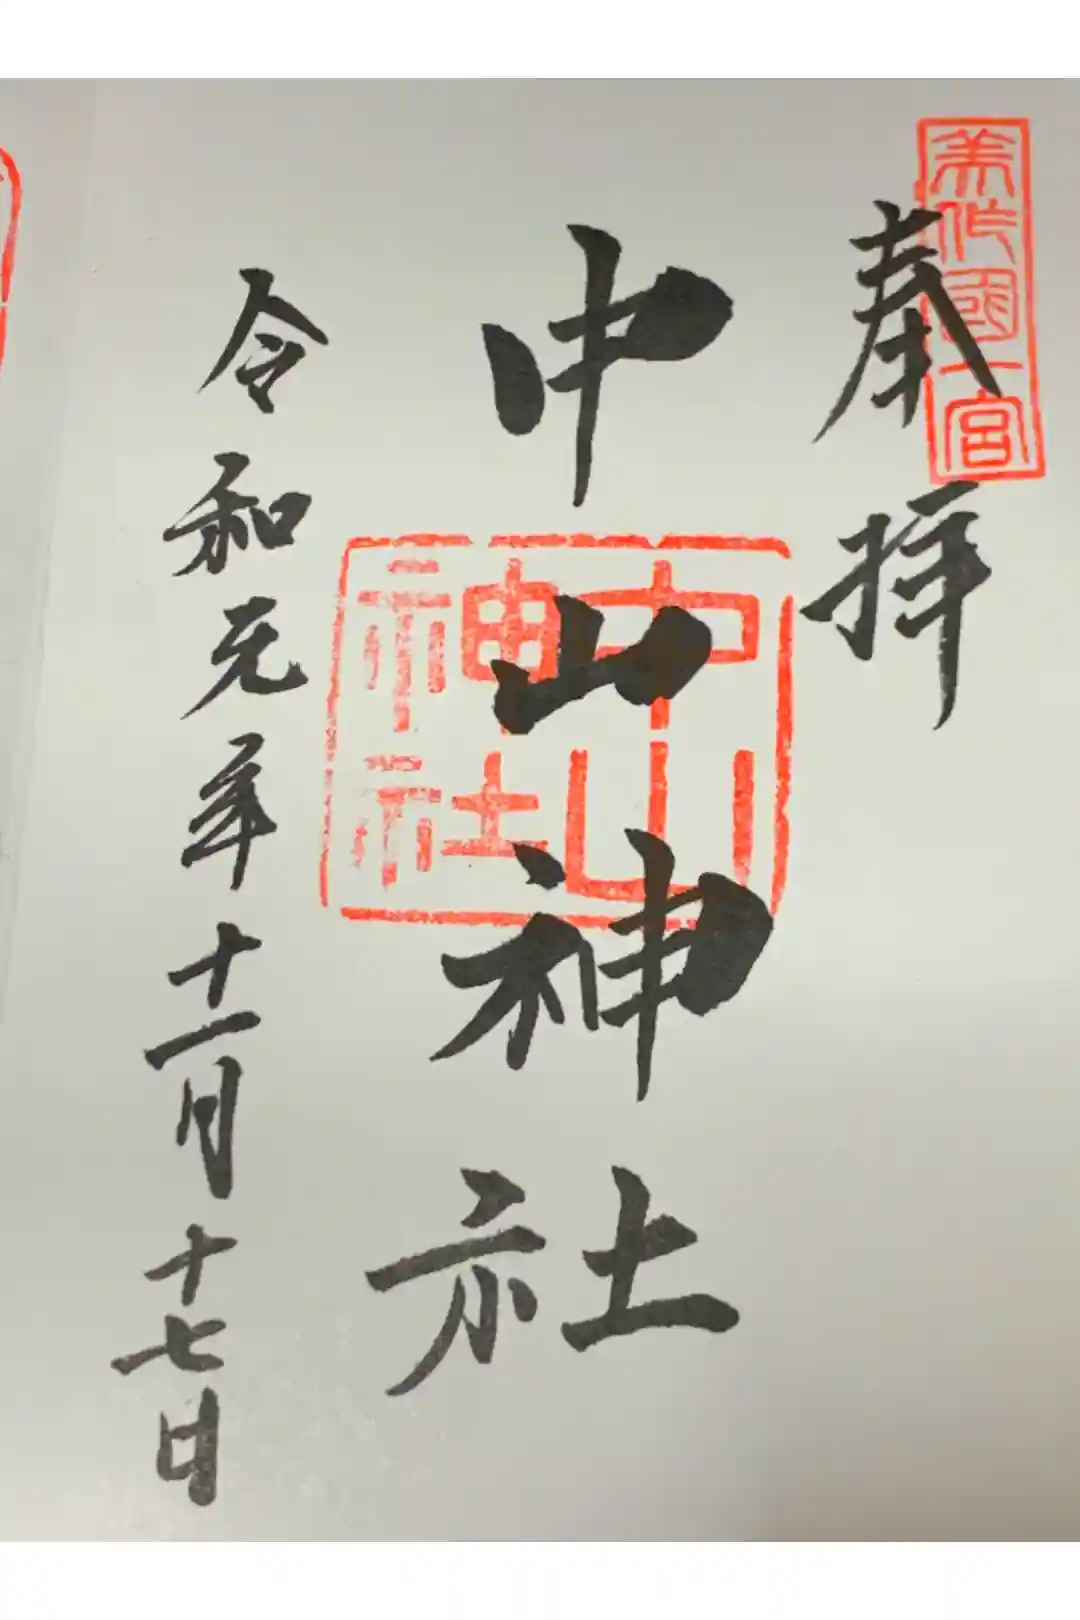 美作國一宮
奉拝
中山神社
中山神社
令和元年十一月十七日